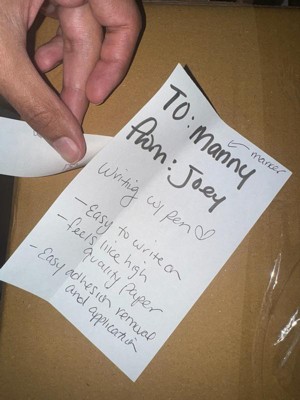 TO: Manny
From: Joey
← marker
Writing w/ pen ♡
- Easy to write on
- feels like high
quality paper
- Easy adhesion removal
and application